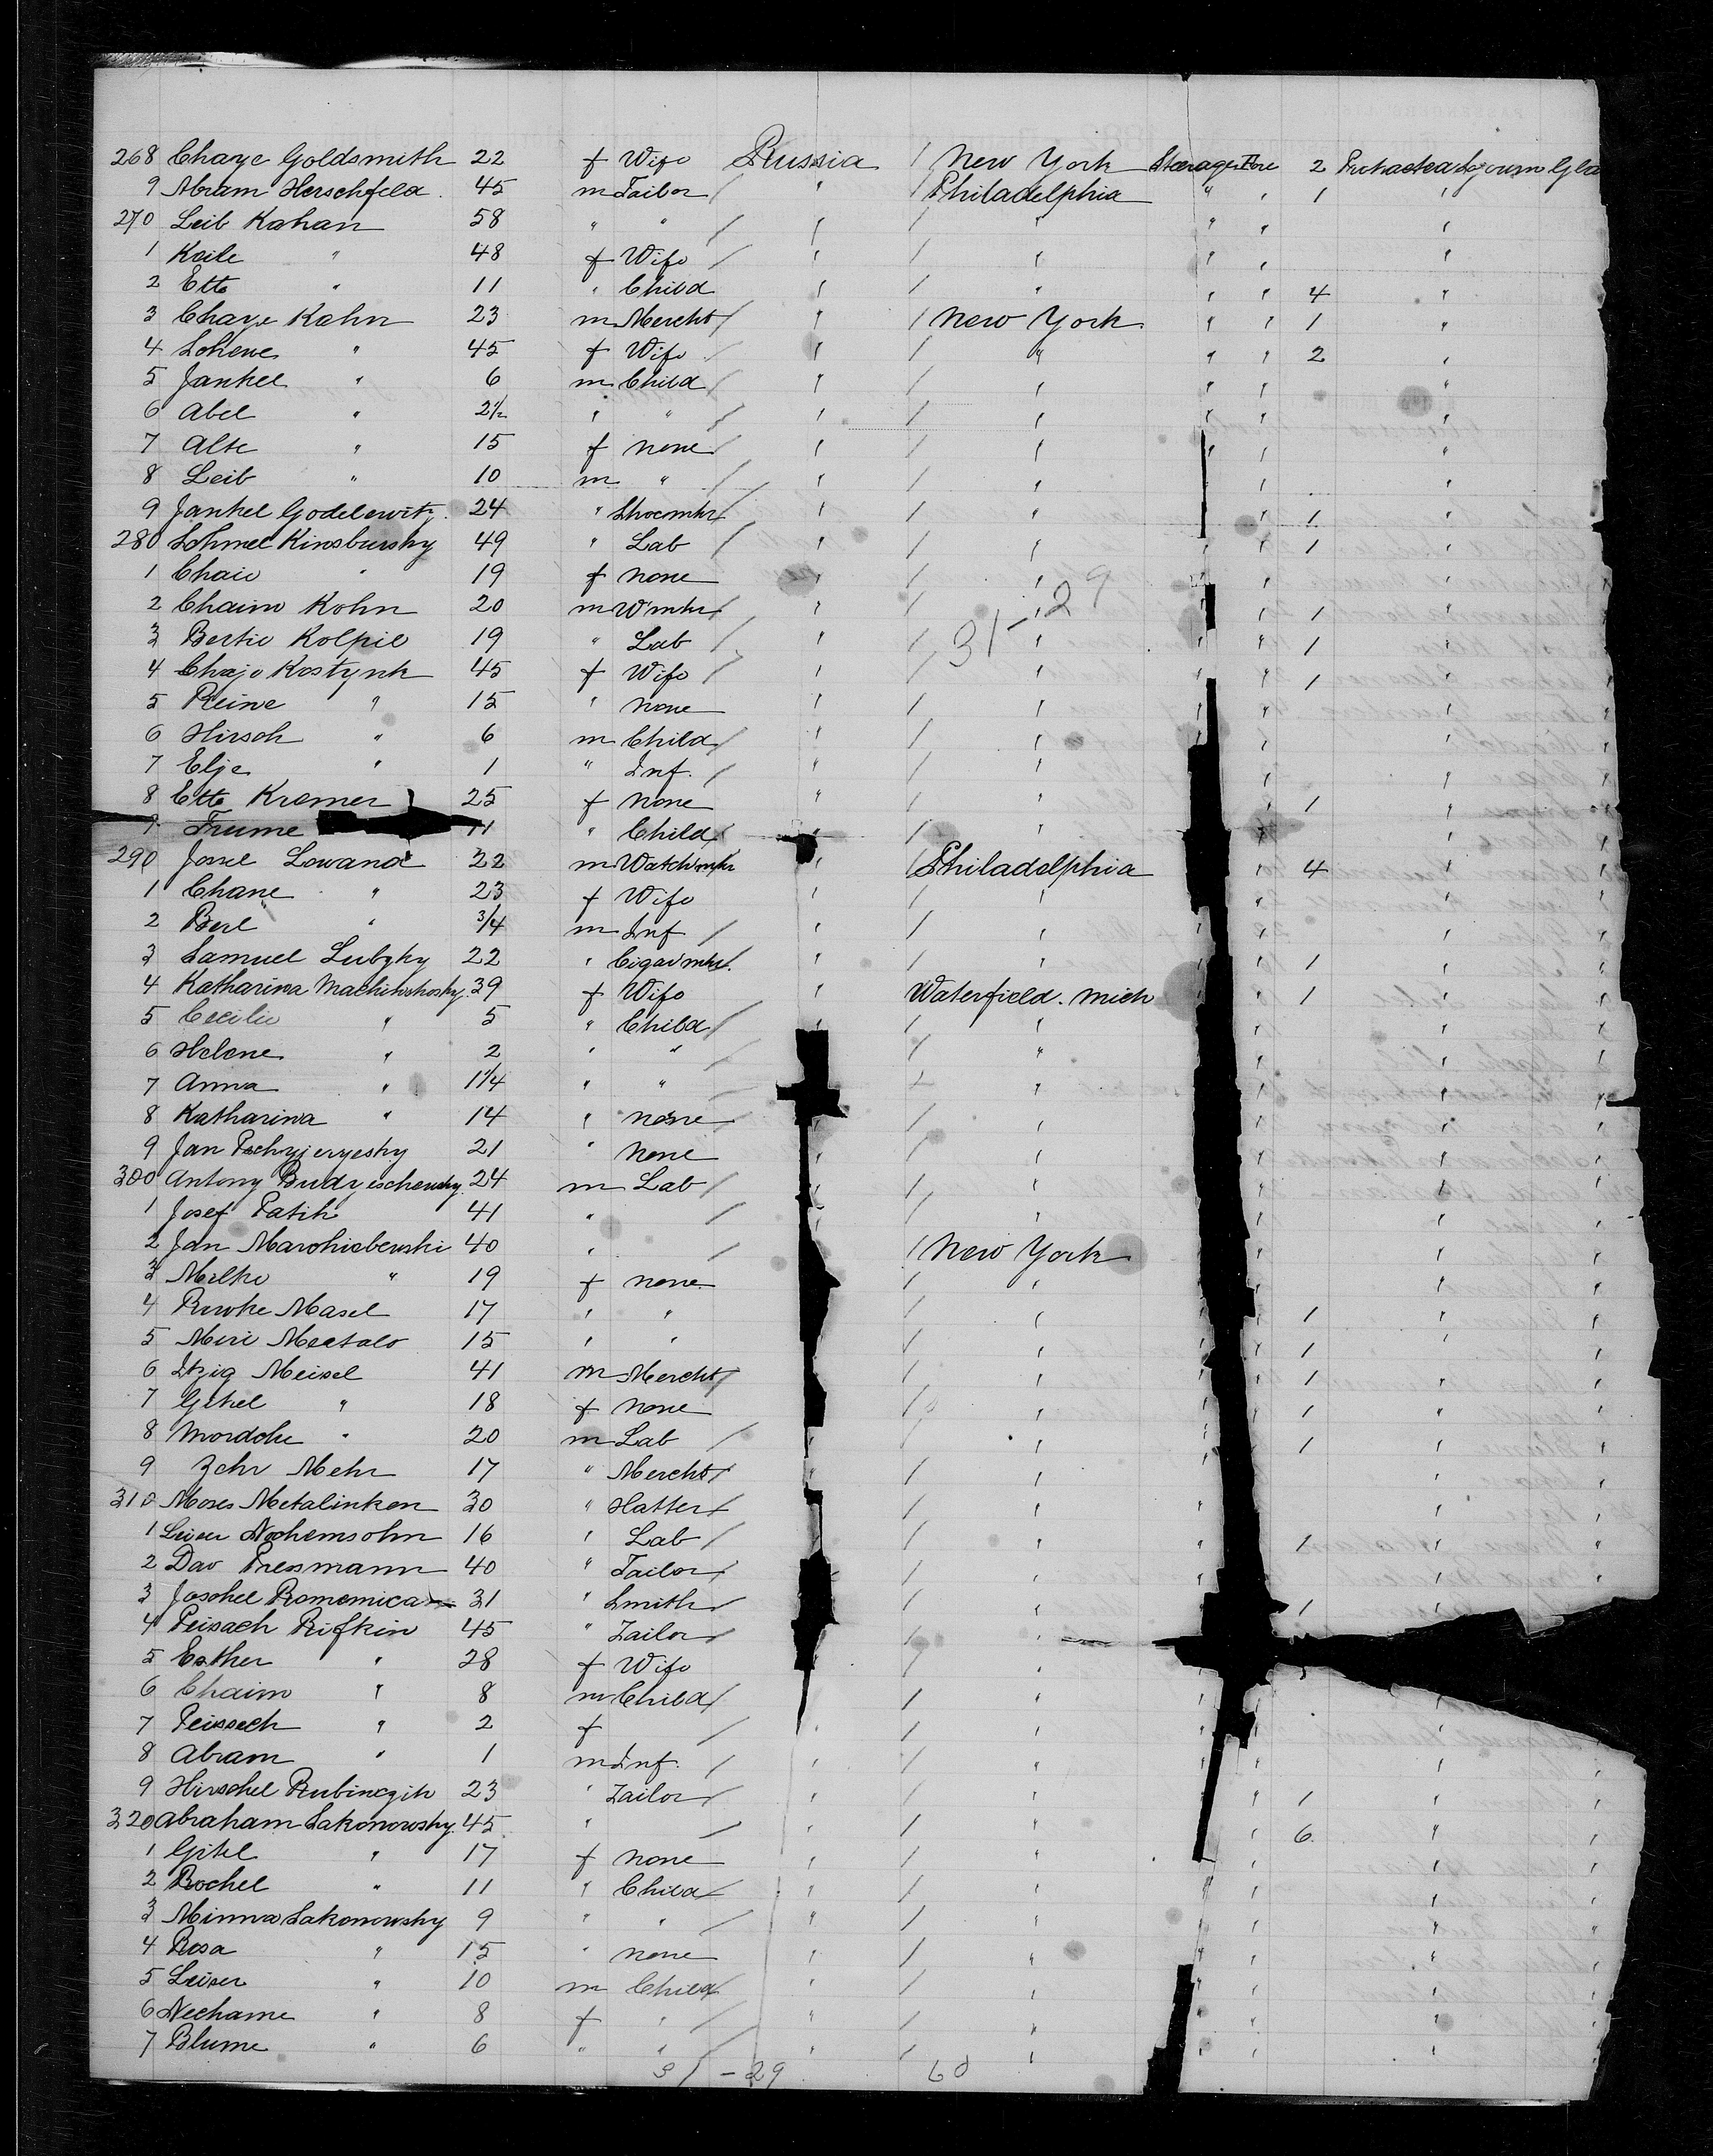 268 Chaye Goldsmith 22 f Wife Russia / New York Steerage Fore 2 Protracted Sojourn Gla
9 Abram Herschfeld 45 m Tailor / " / Philadelphia " " 1 "
270 Leib Kahan 58 " " / " / " " " "
1 Keile " 48 f Wife / " / " " " "
2 Ette " 11 " Child " / " " " 4 "
3 Chaye Kahn 23 m Mercht / " / New York " " 1 "
4 Schewe " 45 f Wife / " / " " " 2 "
5 Jankel " 6 m Child / " / " " " "
6 Abel " 2½ " " / " / " " " "
7 Alte " 15 f none / " / " " " "
8 Leib " 10 m " / " / " " "
9 Jankel Godelewitz 24 " Shoemkr / " / " " 1 "
280 Schmel Kinsbursky 49 " Lab / " / " " " 1 "
1 Chaie " 19 f none " / " " " "
2 Chaim Kohn 20 m Wmkr / " / " " 1 "
3 Bertie Kolpie 19 " Lab / " / 31-29 " " 1 "
4 Chaje Kostynk 45 f Wife / " / " " " 1 "
5 Reine " 15 " none " / " " " "
6 Hirsch " 6 m Child / " / " " "
7 Elje " 1 " Inf. / " / " " "
8 Ette Kremer 25 f none " / " " 1 "
9 Frume 11 " Child / " / " " "
290 Jossel Lewand 22 m Watchmkr " / Philadelphia " 4 "
1 Chane " 23 f Wife " / " " " "
2 Berl " ¾ m Inf / " / " " " "
3 Samuel Lubzky 22 " Cigarmkr. " / " " " 1 "
4 Katharina 39 f Wife " Waterfield. Mich " 1 "
5 Cecilie " 5 " Child / " / " " "
6 Helene " 2 " " / / " " "
7 Anna " 1¼ " " / " " "
8 Katharina " 14 " none / " / " " "
9 Jan 21 " None " / " " "
300 Antony 24 m Lab / " / " " "
1 Josef Patik 41 " / " / " " "
2 Jan 40 " / / New York " "
3 Melke " 19 f none / " " "
4 Rewke Masel 17 " " / " " 1 "
5 Meri 15 " " / " " 1 "
6 Itzig Meisel 41 m Mercht / / " " 1 "
7 Gitel " 18 f none / " " 1 "
8 Mordche " 20 m Lab / " / " " 1 "
9 Zehr Mehr 17 " Mercht / " / " " "
310 Moses Metalinken 30 " Hatter / / " " "
1 Leiser Nochemsohn 16 " Lab / / " " 1 "
2 Dav Pressmann 40 " Tailor / / " " "
3 Joschel 31 " Smith / / " 1 "
4 Peisach Rifkin 45 " Tailor / / "
5 Esther " 28 f Wife / "
6 Chaim " 8 m Child / / " " "
7 Peissech " 2 f / " / " " "
8 Abram " 1 m Inf. / " / " " "
9 Hirschel 23 " Tailor / " / " " " 1 "
320 Abraham Sakonowsky 45 " / " / " " 6 "
1 Gitel " 17 f none " / " " "
2 Rochel " 11 " Child / " / " " " "
3 Minna Sakonowsky 9 " " / " / " " " "
4 Rosa " 15 " none " / " " " "
5 Leiser " 10 m Child / " / " " " "
6 Nechame " 8 f " / " / " " " "
7 Blume " 6 " " / " / " " " "
31-29 60